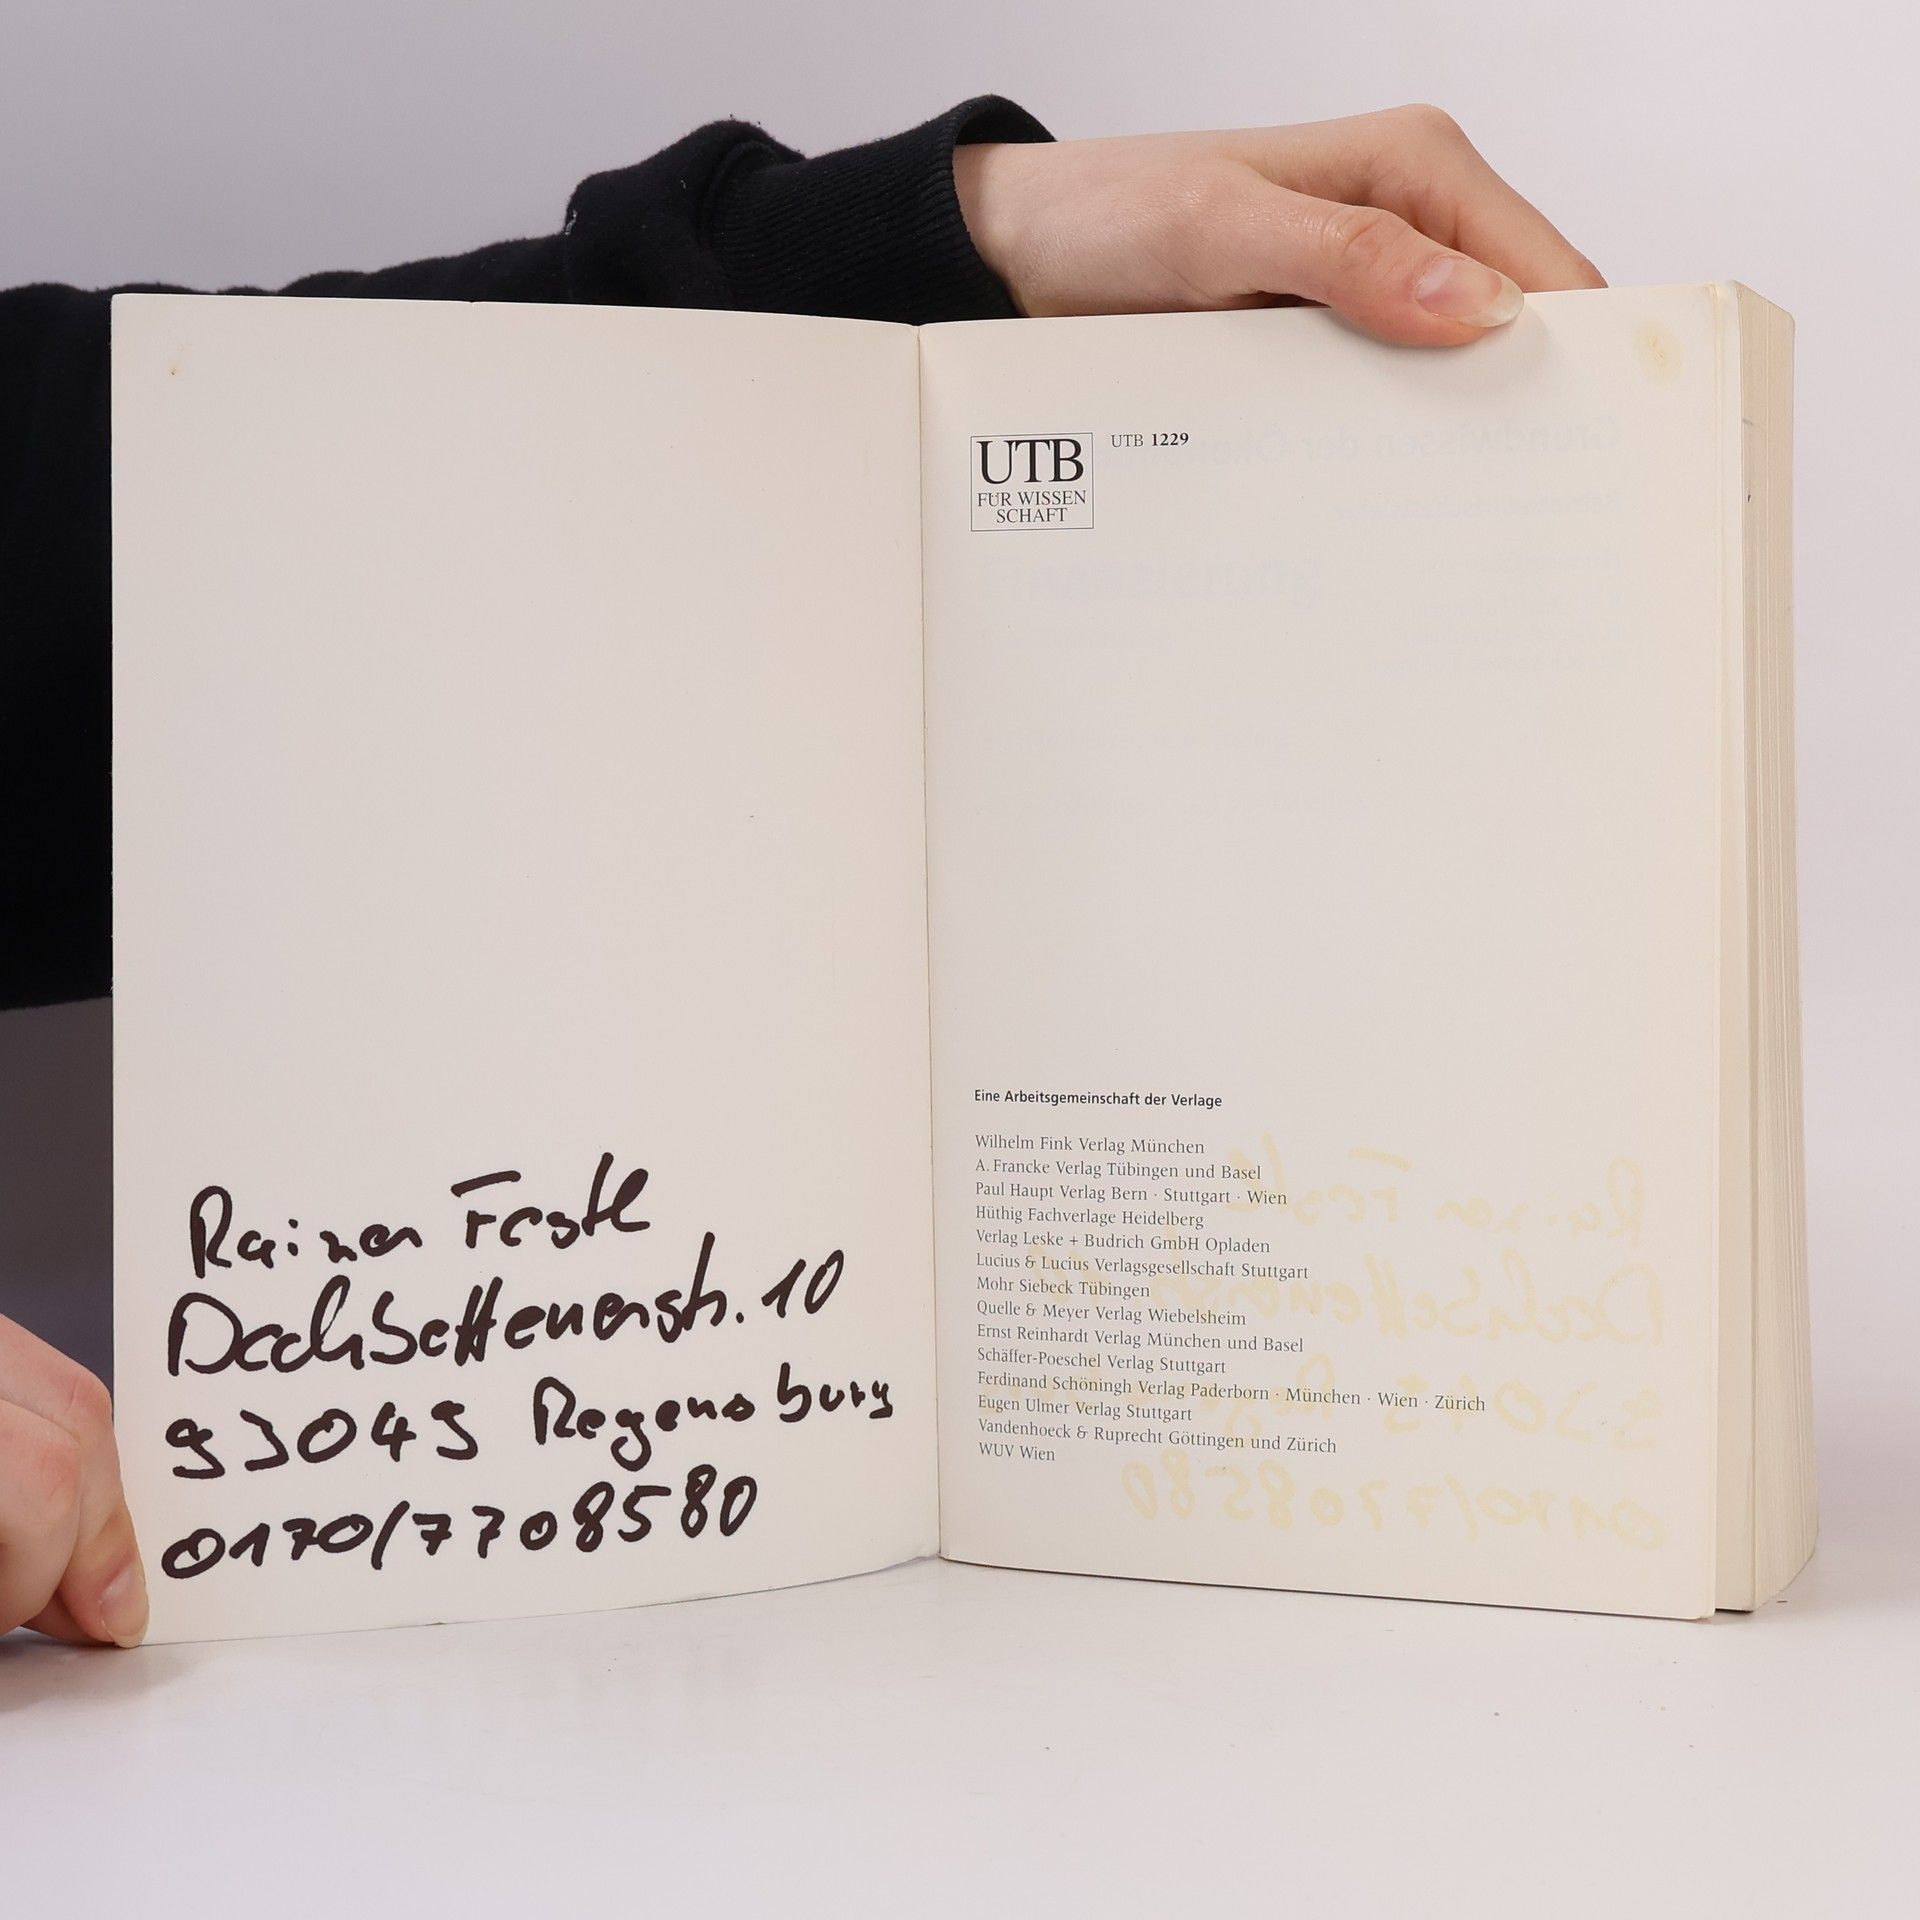 Rainer Festl
Dechbettenerstr. 10
93049 Regensburg
0170/7708580
UTB
FÜR WISSEN
SCHAFT
UTB 1229
Finanzierung
Eine Arbeitsgemeinschaft der Verlage
Wilhelm Fink Verlag München
A. Francke Verlag Tübingen und Basel
Paul Haupt Verlag Bern · Stuttgart · Wien
Hüthig Fachverlage Heidelberg
Verlag Leske + Budrich GmbH Opladen
Lucius & Lucius Verlagsgesellschaft Stuttgart
Mohr Siebeck Tübingen
Quelle & Meyer Verlag Wiebelsheim
Ernst Reinhardt Verlag München und Basel
Schäffer-Poeschel Verlag Stuttgart
Ferdinand Schöningh Verlag Paderborn · München · Wien · Zürich
Eugen Ulmer Verlag Stuttgart
Vandenhoeck & Ruprecht Göttingen und Zürich
WUV Wien